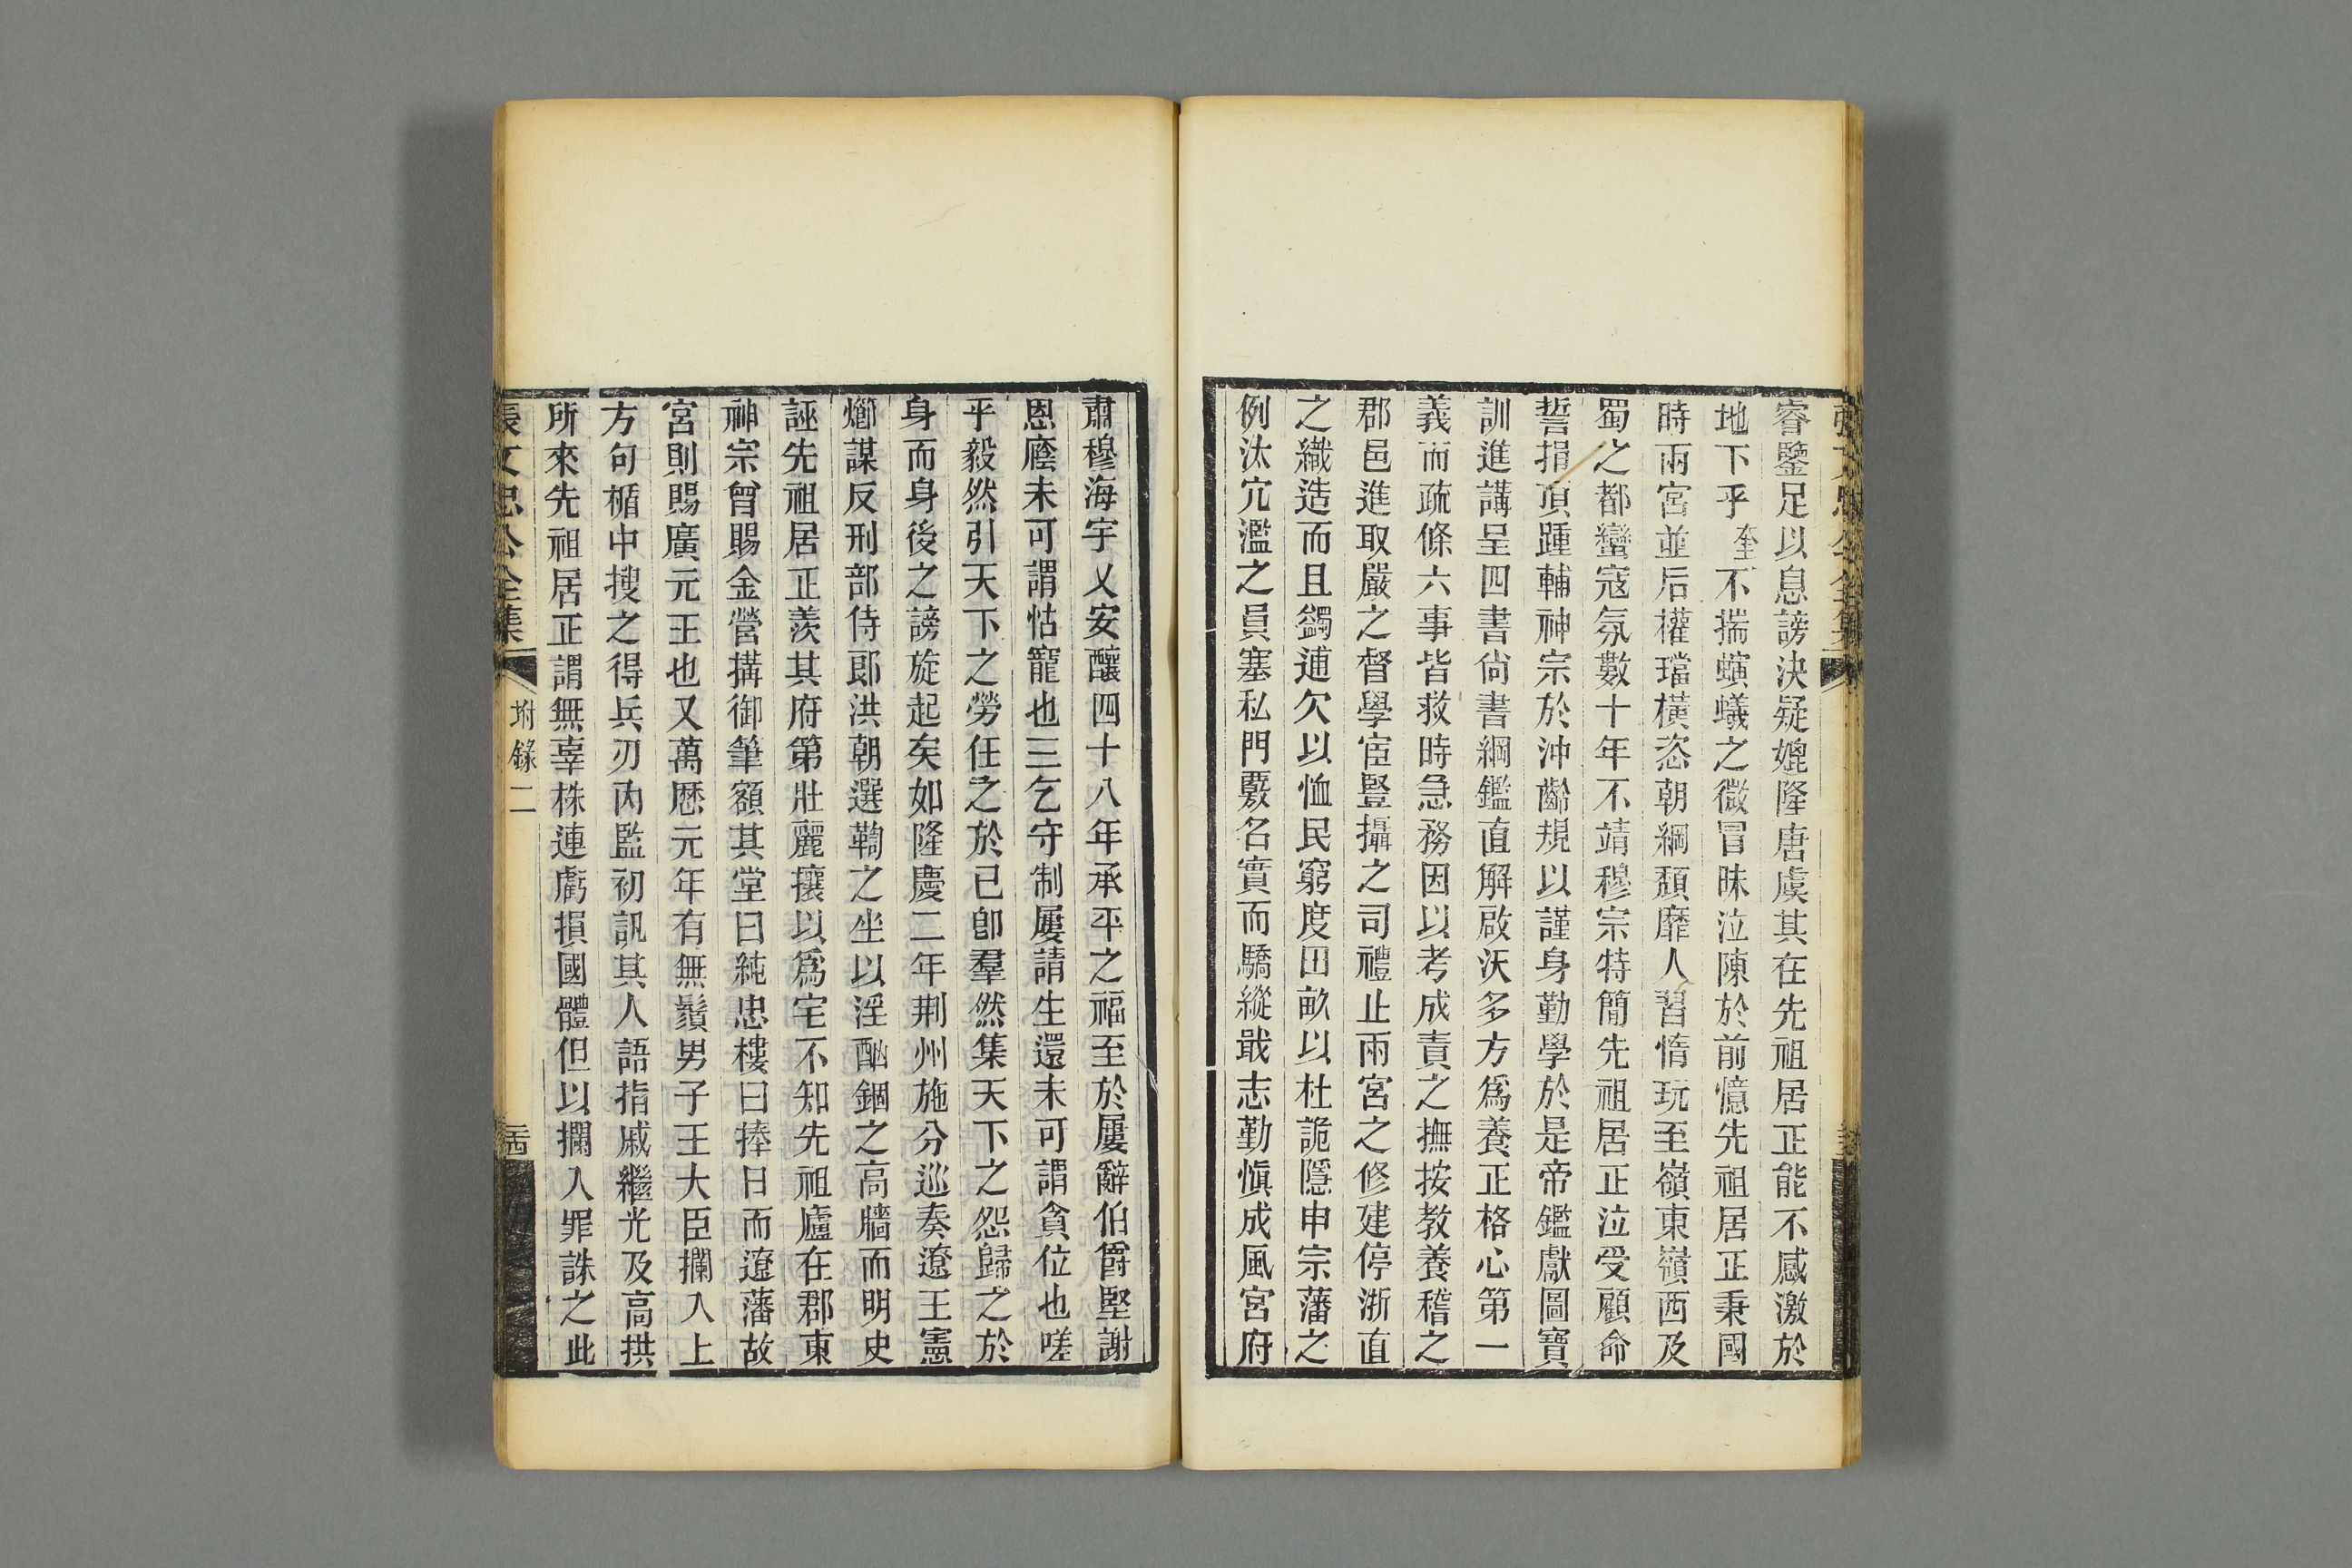 睿鑒足以息謗決疑媲隆唐虞其在先祖居正能不感激於
地下乎奎不揣螾蟻之微冒昧泣陳於前憶先祖居正秉國
時兩宮並后權璫橫恣朝綱頹靡人習惰玩至嶺東嶺西及
蜀之都蠻寇氛數十年不靖穆宗特簡先祖居正泣受顧命
誓捐頂踵輔神宗於沖齡規以謹身勤學於是帝鑑獻圖寶
訓進講呈四書尙書綱鑑直解啟沃多方爲養正格心第一
義而疏條六事皆救時急務因以考成責之撫按教養稽之
郡邑進取嚴之督學宦豎攝之司禮止兩宮之修建停浙直
之織造而且蠲逋欠以恤民窮度田畝以杜詭隱申宗藩之
例汰冗濫之員塞私門覈名實而驕縱戢志勤愼成風宮府
肅穆海宇乂安釀四十八年承平之福至於屢辭伯爵堅謝
恩廕未可謂怙寵也三乞守制屢請生還未可謂貪位也嗟
乎毅然引天下之勞任之於己卽羣然集天下之怨歸之於
身而身後之謗旋起矣如隆慶二年荆州施分巡奏遼王憲
㸅謀反刑部侍郎洪朝選鞫之坐以淫酗錮之高牆而明史
誣先祖居正羨其府第壯麗攘以爲宅不知先祖廬在郡東
神宗曾賜金營搆御筆額其堂曰純忠樓曰捧日而遼藩故
宮則賜廣元王也又萬歷元年有無鬚男子王大臣攔入上
方句楯中搜之得兵刃內監初訊其人語指戚繼光及高拱
所來先祖居正謂無辜株連虧損國體但以攔入罪誅之此
張文忠公全集 附錄二